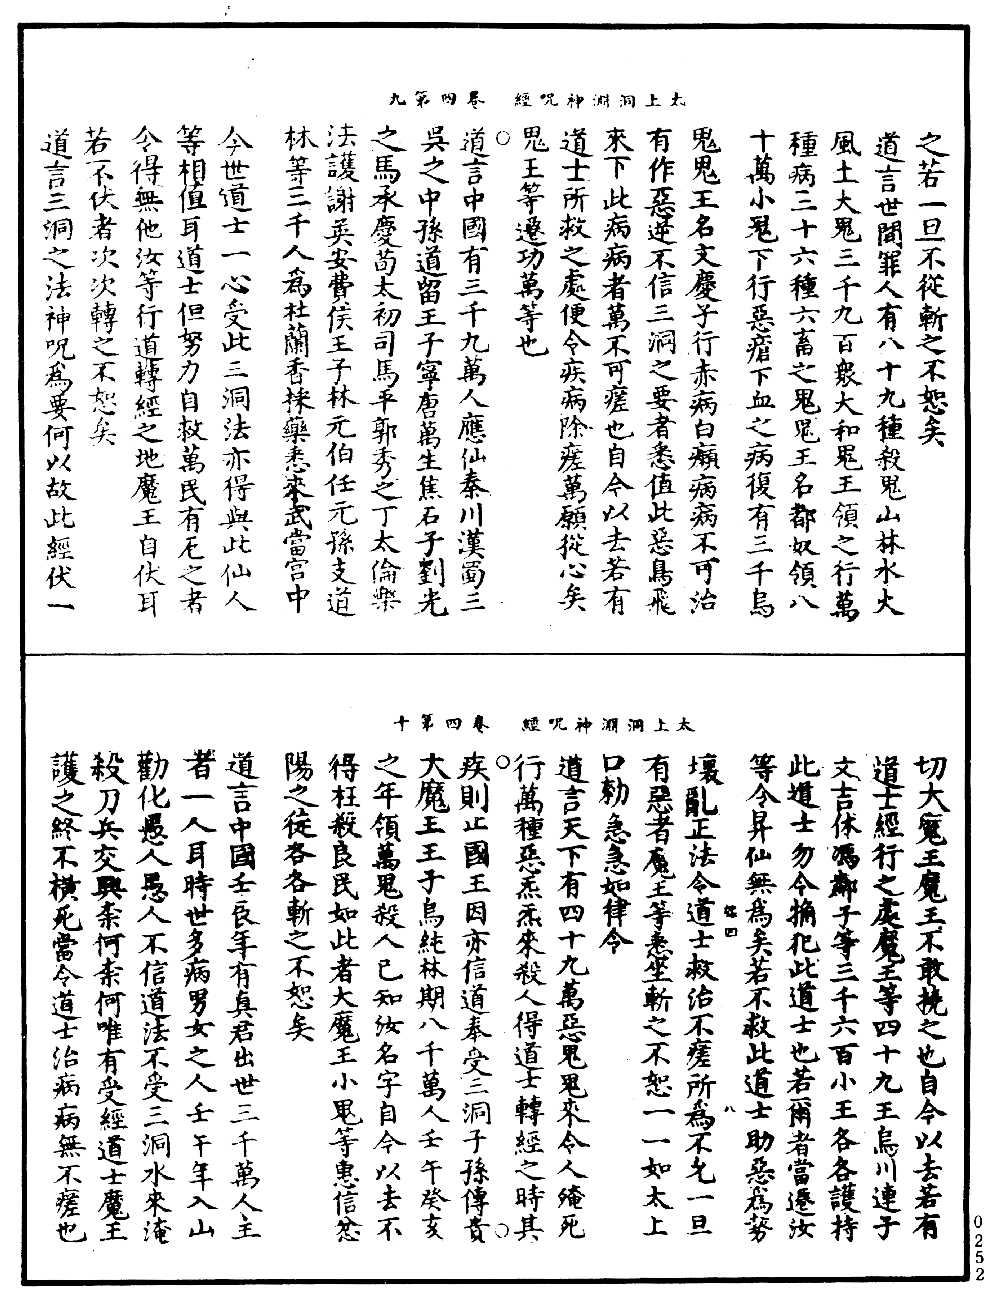 太上洞淵神呪經　卷四第九
之若一旦不從斬之不恕矣
道言世間罪人有八十九種殺鬼山林水火
風土大鬼三千九百衆大和鬼王領之行萬
種病三十六種六畜之鬼鬼王名都奴領八
十萬小鬼下行惡瘡下血之病復有三千烏
鬼鬼王名文慶子行赤病白癩病病不可治
有作惡逆不信三洞之要者悉值此惡鳥飛
來下此病病者萬不可瘥也自今以去若有
道士所救之處便令疾病除瘥萬願從心矣
鬼王等遷功萬等也
道言中國有三千九萬人應仙秦川漢蜀三
吳之中孫道留王子寧唐萬生焦石子劉光
之馬承慶荀太初司馬平郭秀之丁太倫樂
法護謝英安費侯王子林元伯任元孫支道
林等三千人爲杜蘭香採藥悉來武當宫中
今世道士一心受此三洞法亦得與此仙人
等相值耳道士但努力自救萬民有厄之者
令得無他汝等行道轉經之地魔王自伏耳
若不伏者次次轉之不恕矣
道言三洞之法神呪爲要何以故此經伏一
太上洞淵神呪經　卷四第十
切大魔王魔王不敢撓之也自今以去若有
道士經行之處魔王等四十九王烏川連子
文吉休馮鄰子等三千六百小王各各護持
此道士勿令摘犯此道士也若爾者當遷汝
等令昇仙無爲矣若不救此道士助惡爲勢
壞亂正法令道士救治不瘥所爲不允一旦
有惡者魔王等悉坐斬之不恕一一如太上
口勅急急如律令
道言天下有四十九萬惡鬼鬼來令人殗死
行萬種惡炁炁來殺人得道士轉經之時其
疾則止國王因亦信道奉受三洞子孫傳貴
大魔王王子烏純林期八千萬人壬午癸亥
之年領萬鬼殺人已知汝名字自今以去不
得枉殺良民如此者大魔王小鬼等惠信忿
陽之徒各各斬之不恕矣
道言中國壬辰年有真君出世三千萬人主
者一人耳時世多病男女之人壬午年入山
勸化愚人愚人不信道法不受三洞水來淹
殺刀兵交興柰何柰何唯有受經道士魔王
護之終不橫死當令道士治病病無不瘥也
八
0252